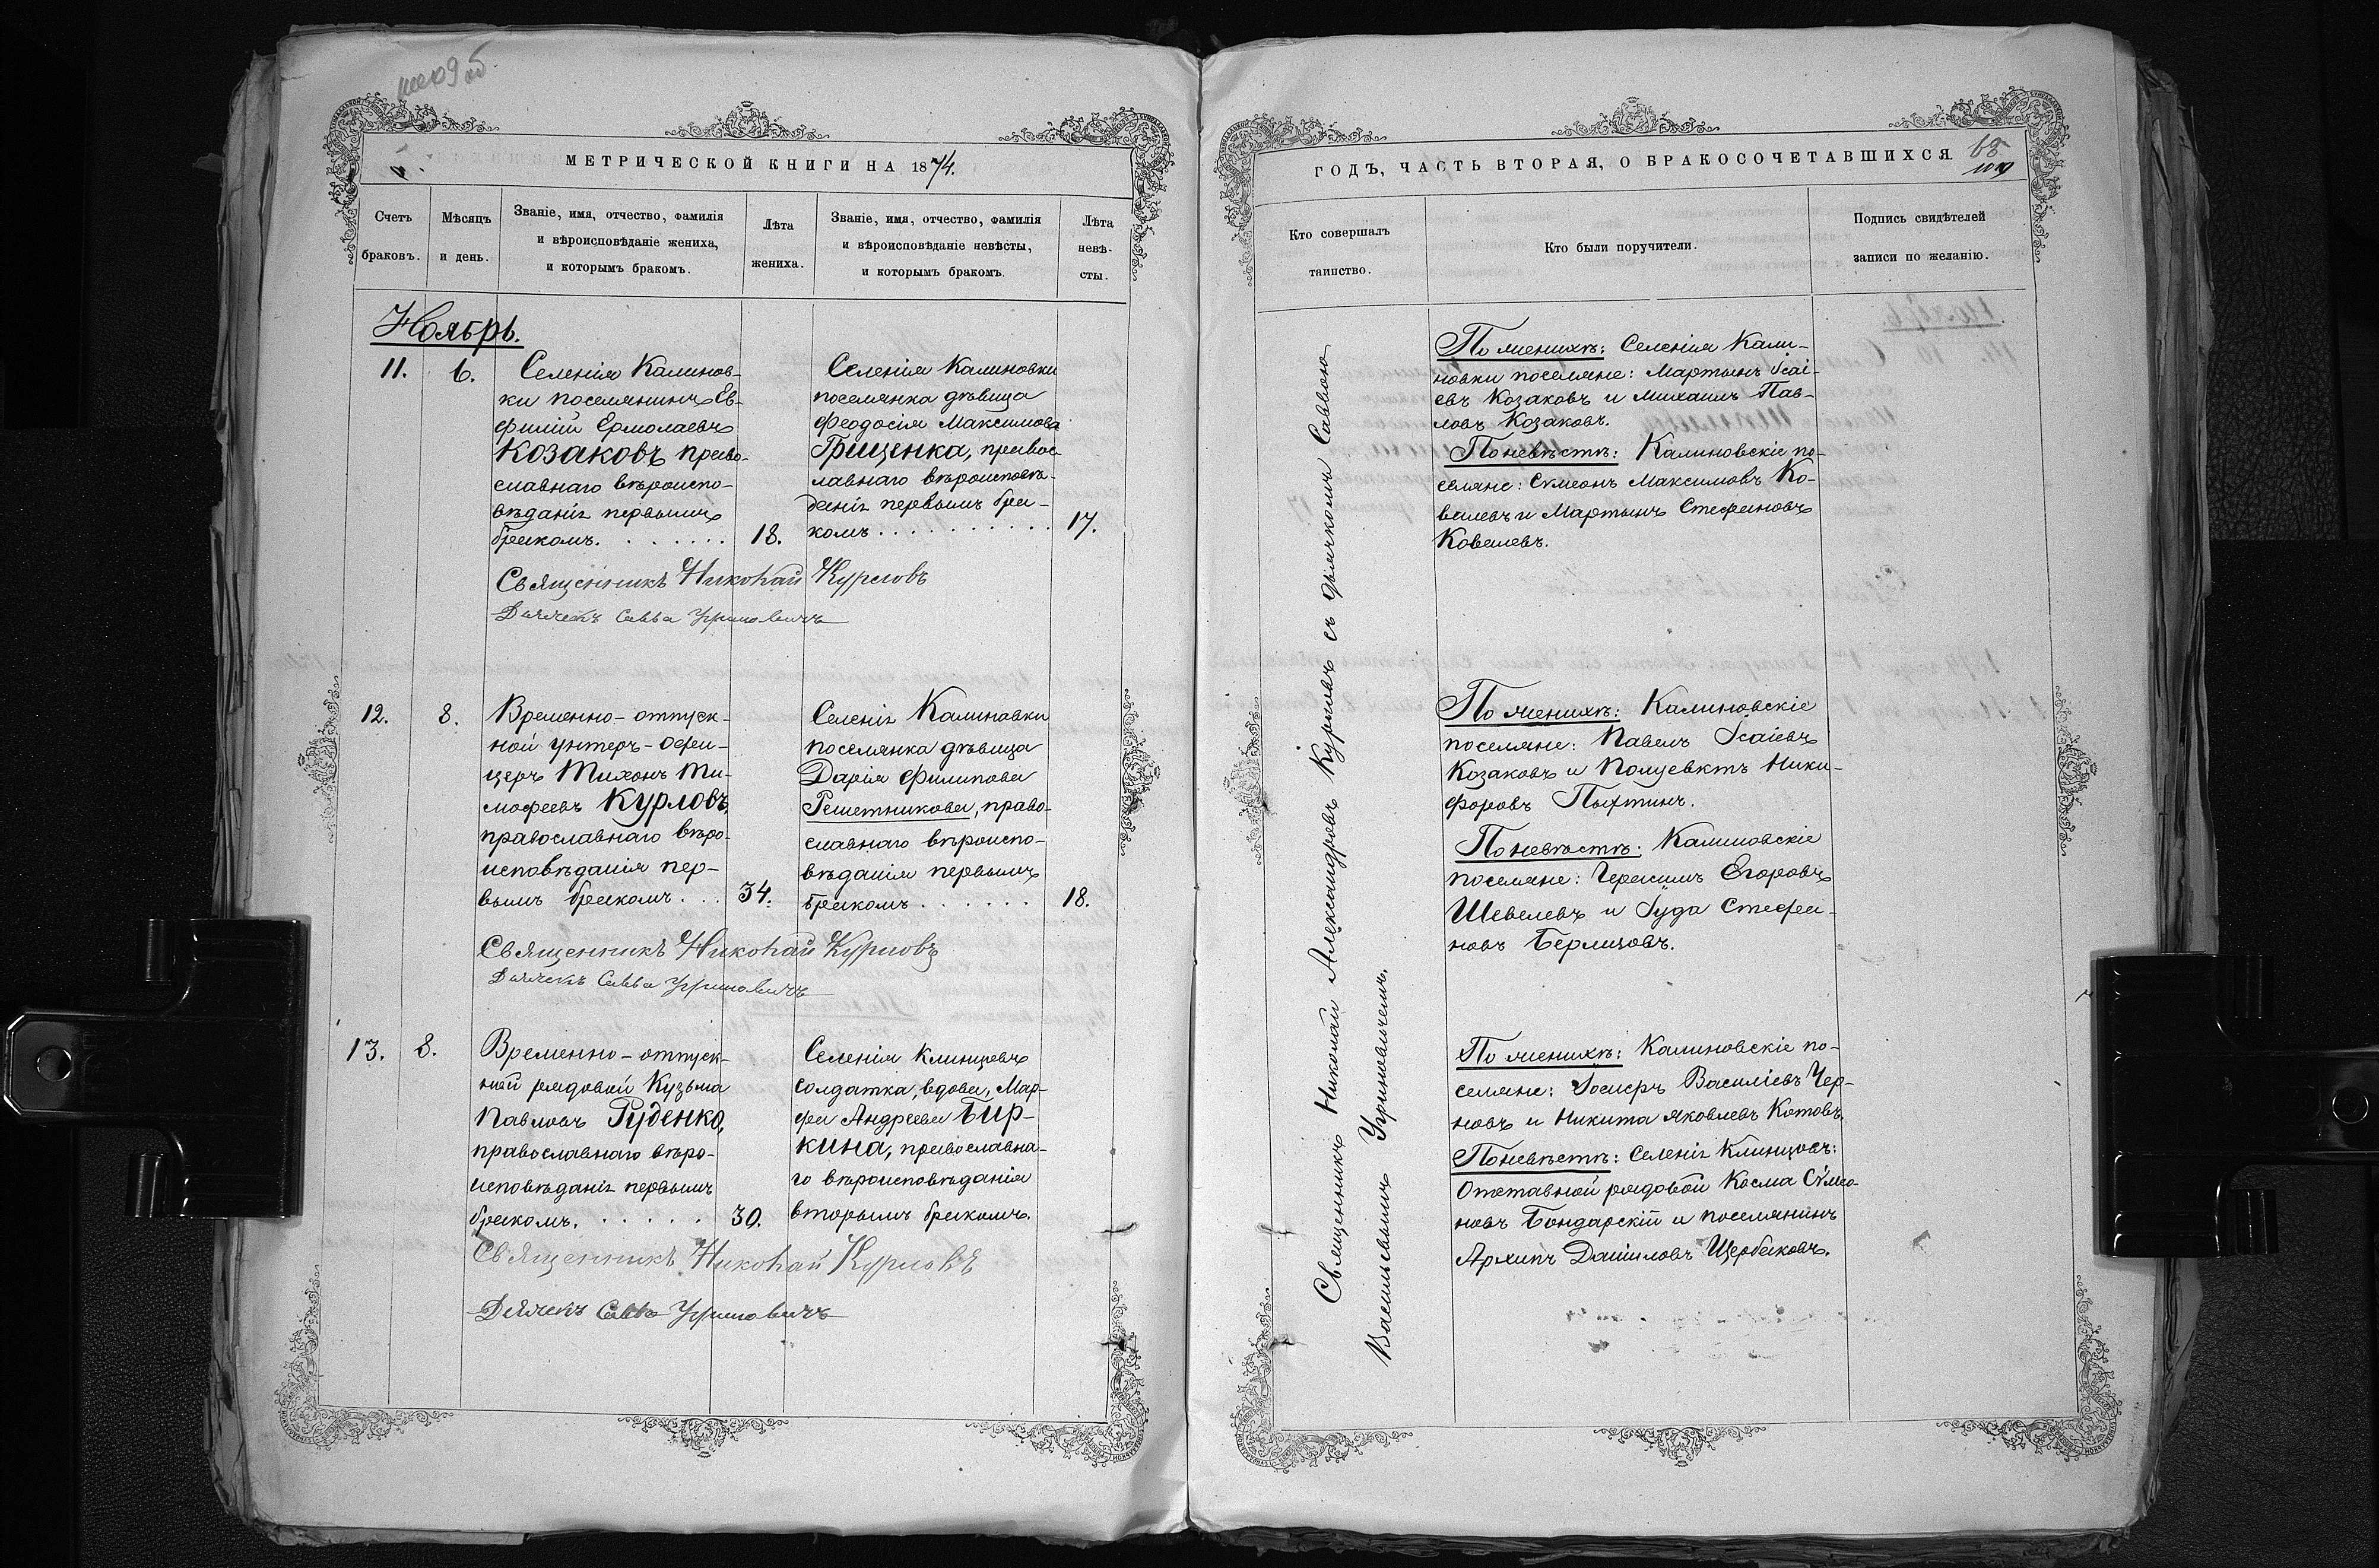 МЕТРИЧЕСКОЙ КНИГИ НА 1874.
Счетъ браковъ.
Мѣсяцъ и день.
Званіе, имя, отчество, фамилія
и вѣроисповѣданіе жениха,
и которымъ бракомъ.
Лѣта
жениха.
Званіе, имя, отчество, фамилія
и вѣроисповѣданіе невѣсты,
и которымъ бракомъ.
Лѣта
невѣ-
сты.
Ноябрь.
11. 6.
Селенія Калинов-
ки поселянинъ Ев-
фимій Ермолаевъ
Козаковъ право-
славнаго вѣроиспо-
вѣданія первымъ
бракомъ. 18.
Селенія Калиновки
поселянка дѣвица
Феодосія Максимова
Грищенка, правос-
лавнаго вѣроисповѣ-
данія первымъ бра-
комъ 17.
Священникъ Николай Курловъ
Дьячекъ Савва Угриновичъ
12. 8.
Временно-отпуск-
ной унтеръ-офи-
церъ Тихонъ Ти-
мофеевъ Курловъ,
православнаго вѣро-
исповѣданія пер-
вымъ бракомъ 34.
Селенія Калиновки
поселянка дѣвица
Дарія Филипова
Решетникова, право-
славнаго вѣроиспо-
вѣданія первымъ
бракомъ 18.
Священникъ Николай Курловъ
Дьячекъ Савва Угриновичъ
13. 8.
Временно-отпуск-
ной рядовой Кузьма
Павловъ Руденко,
православнаго вѣро-
исповѣданія первымъ
бракомъ. 30.
Селенія Клинцовъ
солдатка, вдова, Мар-
фа Андреева Бир-
кина, православна-
го вѣроисповѣданія
вторымъ бракомъ.
Священникъ Николай Курловъ
Дьячекъ Савва Угриновичъ
ГОДЪ, ЧАСТЬ ВТОРАЯ, О БРАКОСОЧЕТАВШИХСЯ.
Кто совершалъ
таинство.
Кто были поручители.
Подпись свидѣтелей
записи по желанію.
Священникъ Николай Александровъ Курловъ съ дьячкомъ Саввою
Васильевымъ Угриновичемъ.
По женихѣ: Селенія Кали-
новки поселяне: Мартынъ Ісаі-
евъ Козаковъ и Михаилъ Пав-
ловъ Козаковъ.
По невѣстѣ: Калиновскіе по-
селяне: Сѵмеонъ Максимовъ Ко-
валевъ и Мартынъ Стефановъ
Ковалевъ.
По женихѣ: Калиновскіе
поселяне: Павелъ Ісаіевъ
Козаковъ и Полуевктъ Ники-
форовъ Пыхтинъ.
По невѣстѣ: Калиновскіе
поселяне: Герасимъ Егоровъ
Шевелевъ и Іуда Стефа-
новъ Берлизовъ.
По женихѣ: Калиновскіе по-
селяне: Іосифъ Василіевъ Чер-
новъ и Никита Яковлевъ Котовъ.
По невѣстѣ: Селенія Клинцовъ:
Отставной рядовой Косма Сѵмео-
новъ Бондарскій и поселянинъ
Архипъ Даниловъ Щербаковъ.